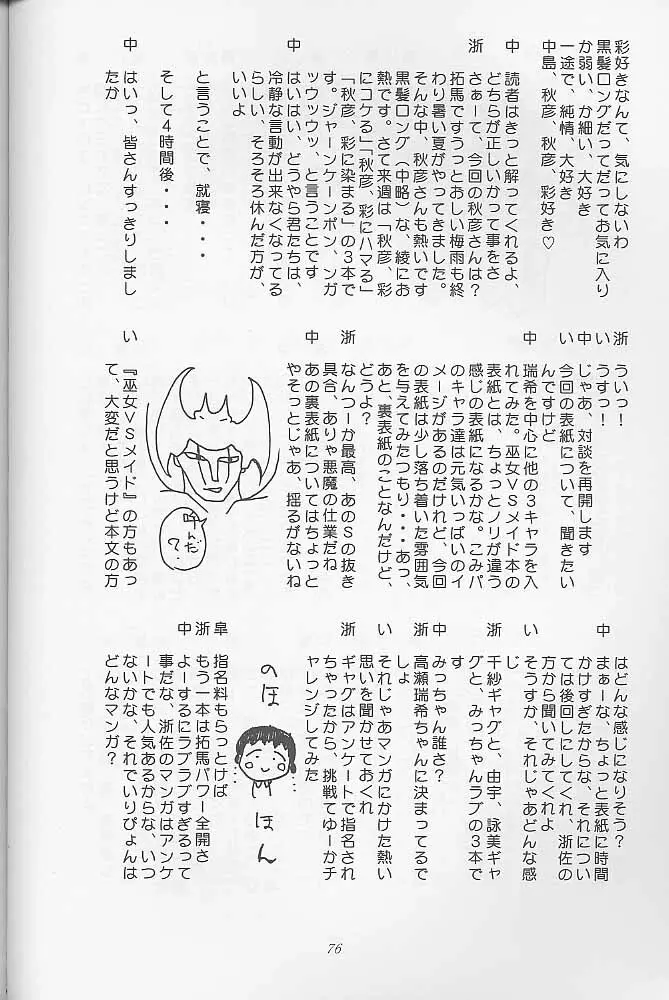 彩好きなんて、気にしないわ
黒髪ロングだってだってお気に入り
か弱い、か細い、大好き
一途で、純情、大好き
中島、秋彦、秋彦、彩好き♡
中 読者はきっと解ってくれるよ、
どちらが正しいかって事をさ
浙 さぁーて、今回の秋彦さんは？
拓馬ですうっとおしい梅雨も終
わり暑い夏がやってきました。
そんな中、秋彦さんも熱いです
黒髪ロング（中略）な、綾にお
熱です。さて来週は「秋彦、彩
にコケる」「秋彦、彩にハマる」
「秋彦、彩に染まる」の３本で
す。ジャーンケーンポン、ンガ
ッウウッウッ、と言うことです
中 はいはい、どうやら君たちは、
冷静な言動が出来なくなってる
らしい、そろそろ休んだ方が、
いいよ
と言うことで、就寝・・・
そして４時間後・・・
中 はいっ、皆さんすっきりしまし
たか
浙 ういっ！
い うすっ！
中 じゃあ、対談を再開します
い 今回の表紙について、聞きたい
んですけど
中 瑞希を中心に他の３キャラを入
れてみた。巫女ＶＳメイド本の
表紙とは、ちょっとノリが違う
感じの表紙になるかな。こみパ
のキャラ達は元気いっぱいのイ
メージがあるのだけれど、今回
の表紙は少し落ち着いた雰囲気
を与えてみたつもり・・・あっ、
あと、裏表紙のことなんだけど、
どうよ？
浙 なんつーか最高、あのＳの抜き
具合、ありゃ悪魔の仕業だね
中 あの裏表紙についてはちょっと
やそっとじゃあ、揺るがないね
吟んだ？
い 『巫女ＶＳメイド』の方もあっ
て、大変だと思うけど本文の方
はどんな感じになりそう？
中 まぁーな、ちょっと表紙に時間
かけすぎたからな、それについ
ては後回しにしてくれ、浙佐の
方から聞いてみてくれよ
い そうすか、それじゃあどんな感
じ
浙 千紗ギャグと、由宇、詠美ギャ
グと、みっちゃんラブの３本で
す
中 みっちゃん誰さ？
浙 高瀬瑞希ちゃんに決まってるで
しょ
い それじゃあマンガにかけた熱い
思いを聞かせておくれ
浙 ギャグはアンケートで指名され
ちゃったから、挑戦てゆーかチ
ャレンジしてみた
のほ
ほん
皐 指名料もらっとけば
浙 もう一本は拓馬パワー全開さ
中 よーするにラブラブすぎるって
事だな、浙佐のマンガはアンケ
ートでも人気あるからな、いつ
ないかな、それでいりぴょんは
どんなマンガ？
76